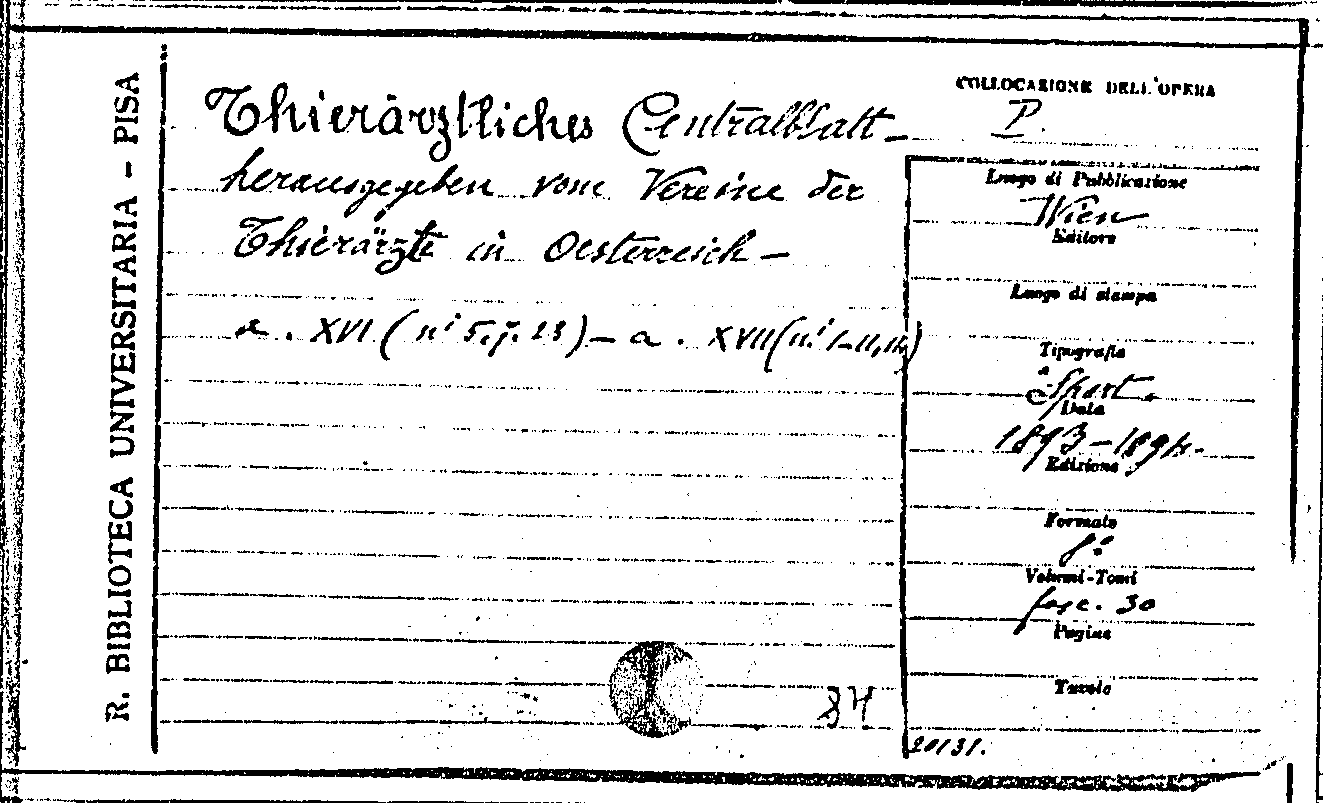 R. BIBLIOTECA UNIVERSITARIA - PISA
Thierärztliches Centralblatt -
herausgegeben vom Vereine der
Thierärzte in Oesterreich -
a. XVI (ni 5, 7. 23) - a. XVII (ni 1-11, 14)
84
COLLOCAZIONE DELL'OPERA
P.
Luogo di Pubblicazione
Wien
Editore
Luogo di stampa
Tipografia
Sport.
Data
1893-1894.
Edizione
Formato
8°
Volumi-Tomi
fasc. 30
Pagine
Tavole
20131.